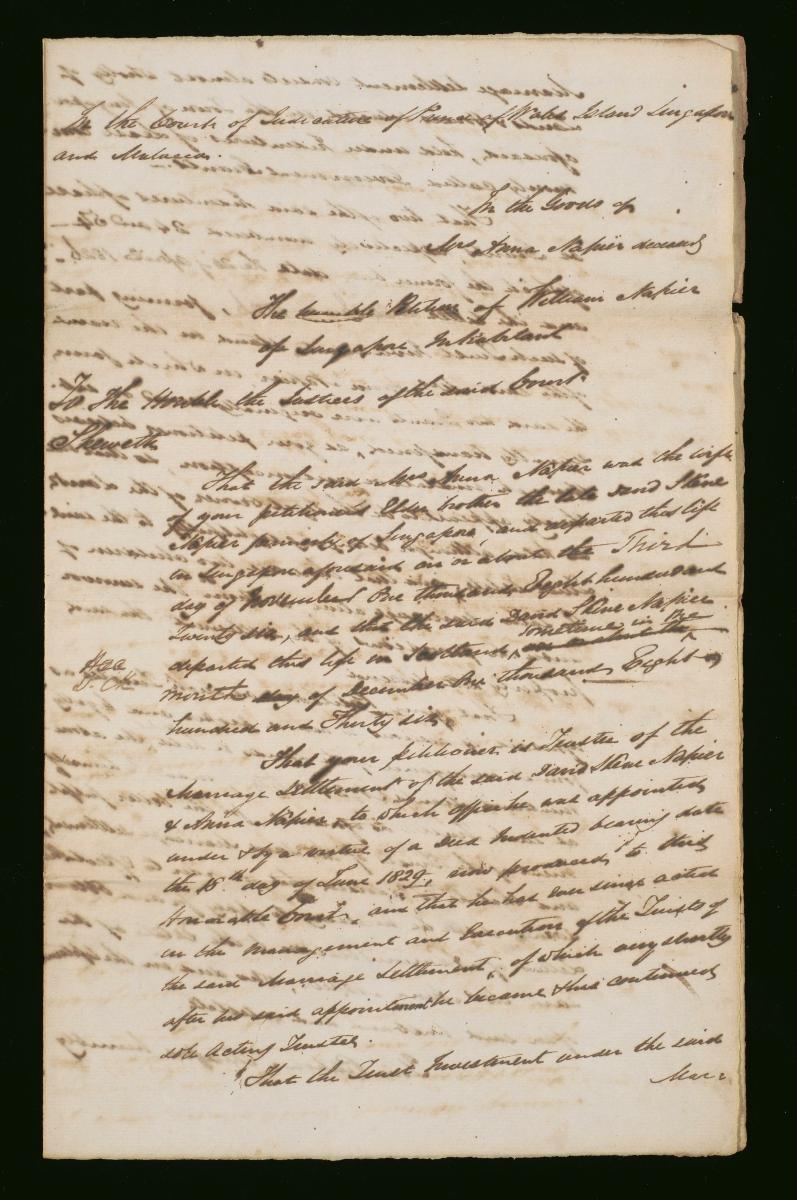 In the Court of Judicature of Prince of Wales Island Singapore
and Malacca.
In the Goods of
Mrs Anna Napier deceased
The humble Petition of William Napier
of Singapore Inhabitant
To The Honble the Justices of the said Court
Sheweth
That the said Mrs Anna Napier was the wife
of your petitioners Elder brother the late David Skene
Napier formerly of Singapore, and departed this life
in Singapore aforesaid on or about the Third
day of November One thousand Eight hundred and
Twenty six, and that the said David Skene Napier
sometime in the
departed this life in Scotland, on or about the
month day of December One thousand Eight
hundred and Thirty six.
That your petitioner is Trustee of the
Marriage Settlement of the said David Skene Napier
& Anna Napier, to which office he was appointed
under & by a virtue of a Deed Indented bearing date
the 15th day of June 1829, now produced to this
Honorable Court, and that he has ever since acted
in the management and Execution of the Trusts of
the said Marriage Settlement, of which very shortly
after his said appointment he became & has continued
sole Acting Trustee.
That the Trust Investment under the said
Mar: